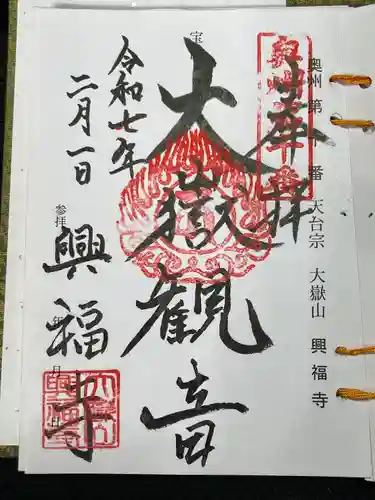 奥州第十番 天台宗 大嶽山 興福寺
奉拝
宝
大嶽観音
令和七年
二月一日
参拝 年 月 日
興福寺